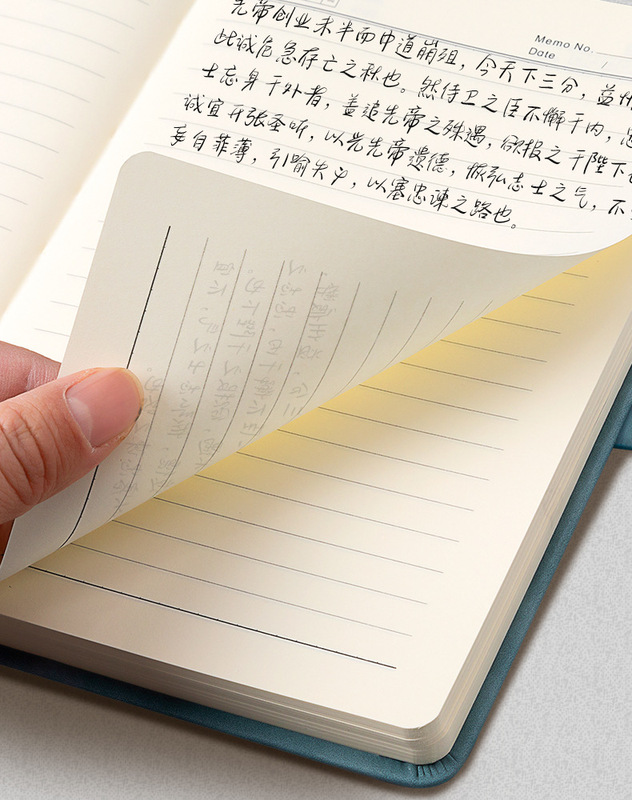 Memo No.
Date /
先帝创业未半而中道崩殂，今天下三分，益州
此诚危急存亡之秋也。然侍卫之臣不懈于内，忠
士忘身于外者，盖追先帝之殊遇，欲报之于陛下也
诚宜开张圣听，以光先帝遗德，恢弘志士之气，不
妄自菲薄，引喻失义，以塞忠谏之路也。